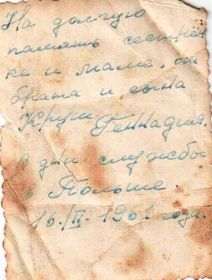 На долгую
память сестрич
ке и маме, от
брата и сына
Геннадия.
В дни службы
в Польше.
16/II-196 года.